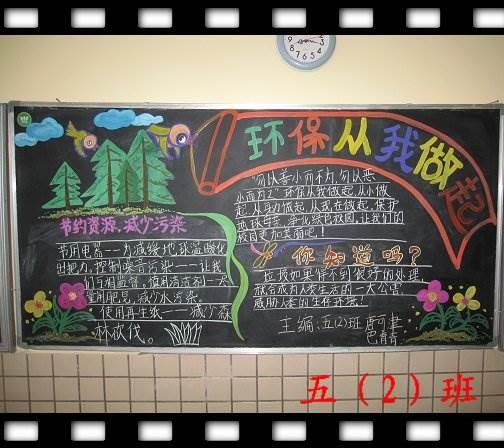 环保从我做起
"勿以善小而不为,勿以恶
小而为之"环保从我做起,从小做
起,从身边做起,从现在做起,保护
地球与环境,争化绿色校园,让我们的
校园更加美丽吧!
节约资源、减少污染
节用电器——为减缓地球温暖化
出把力,控制噪音污染——让我
们互相监督,慎用清洁剂—尽
量用肥皂,减少水污染。
使用再生纸——减少森
林砍伐。
你知道吗?
垃圾如果得不到很好的处理
就会成为人类生活的一大公害,
威胁人类的生存环境!
主编:五(2)班
五(2)班